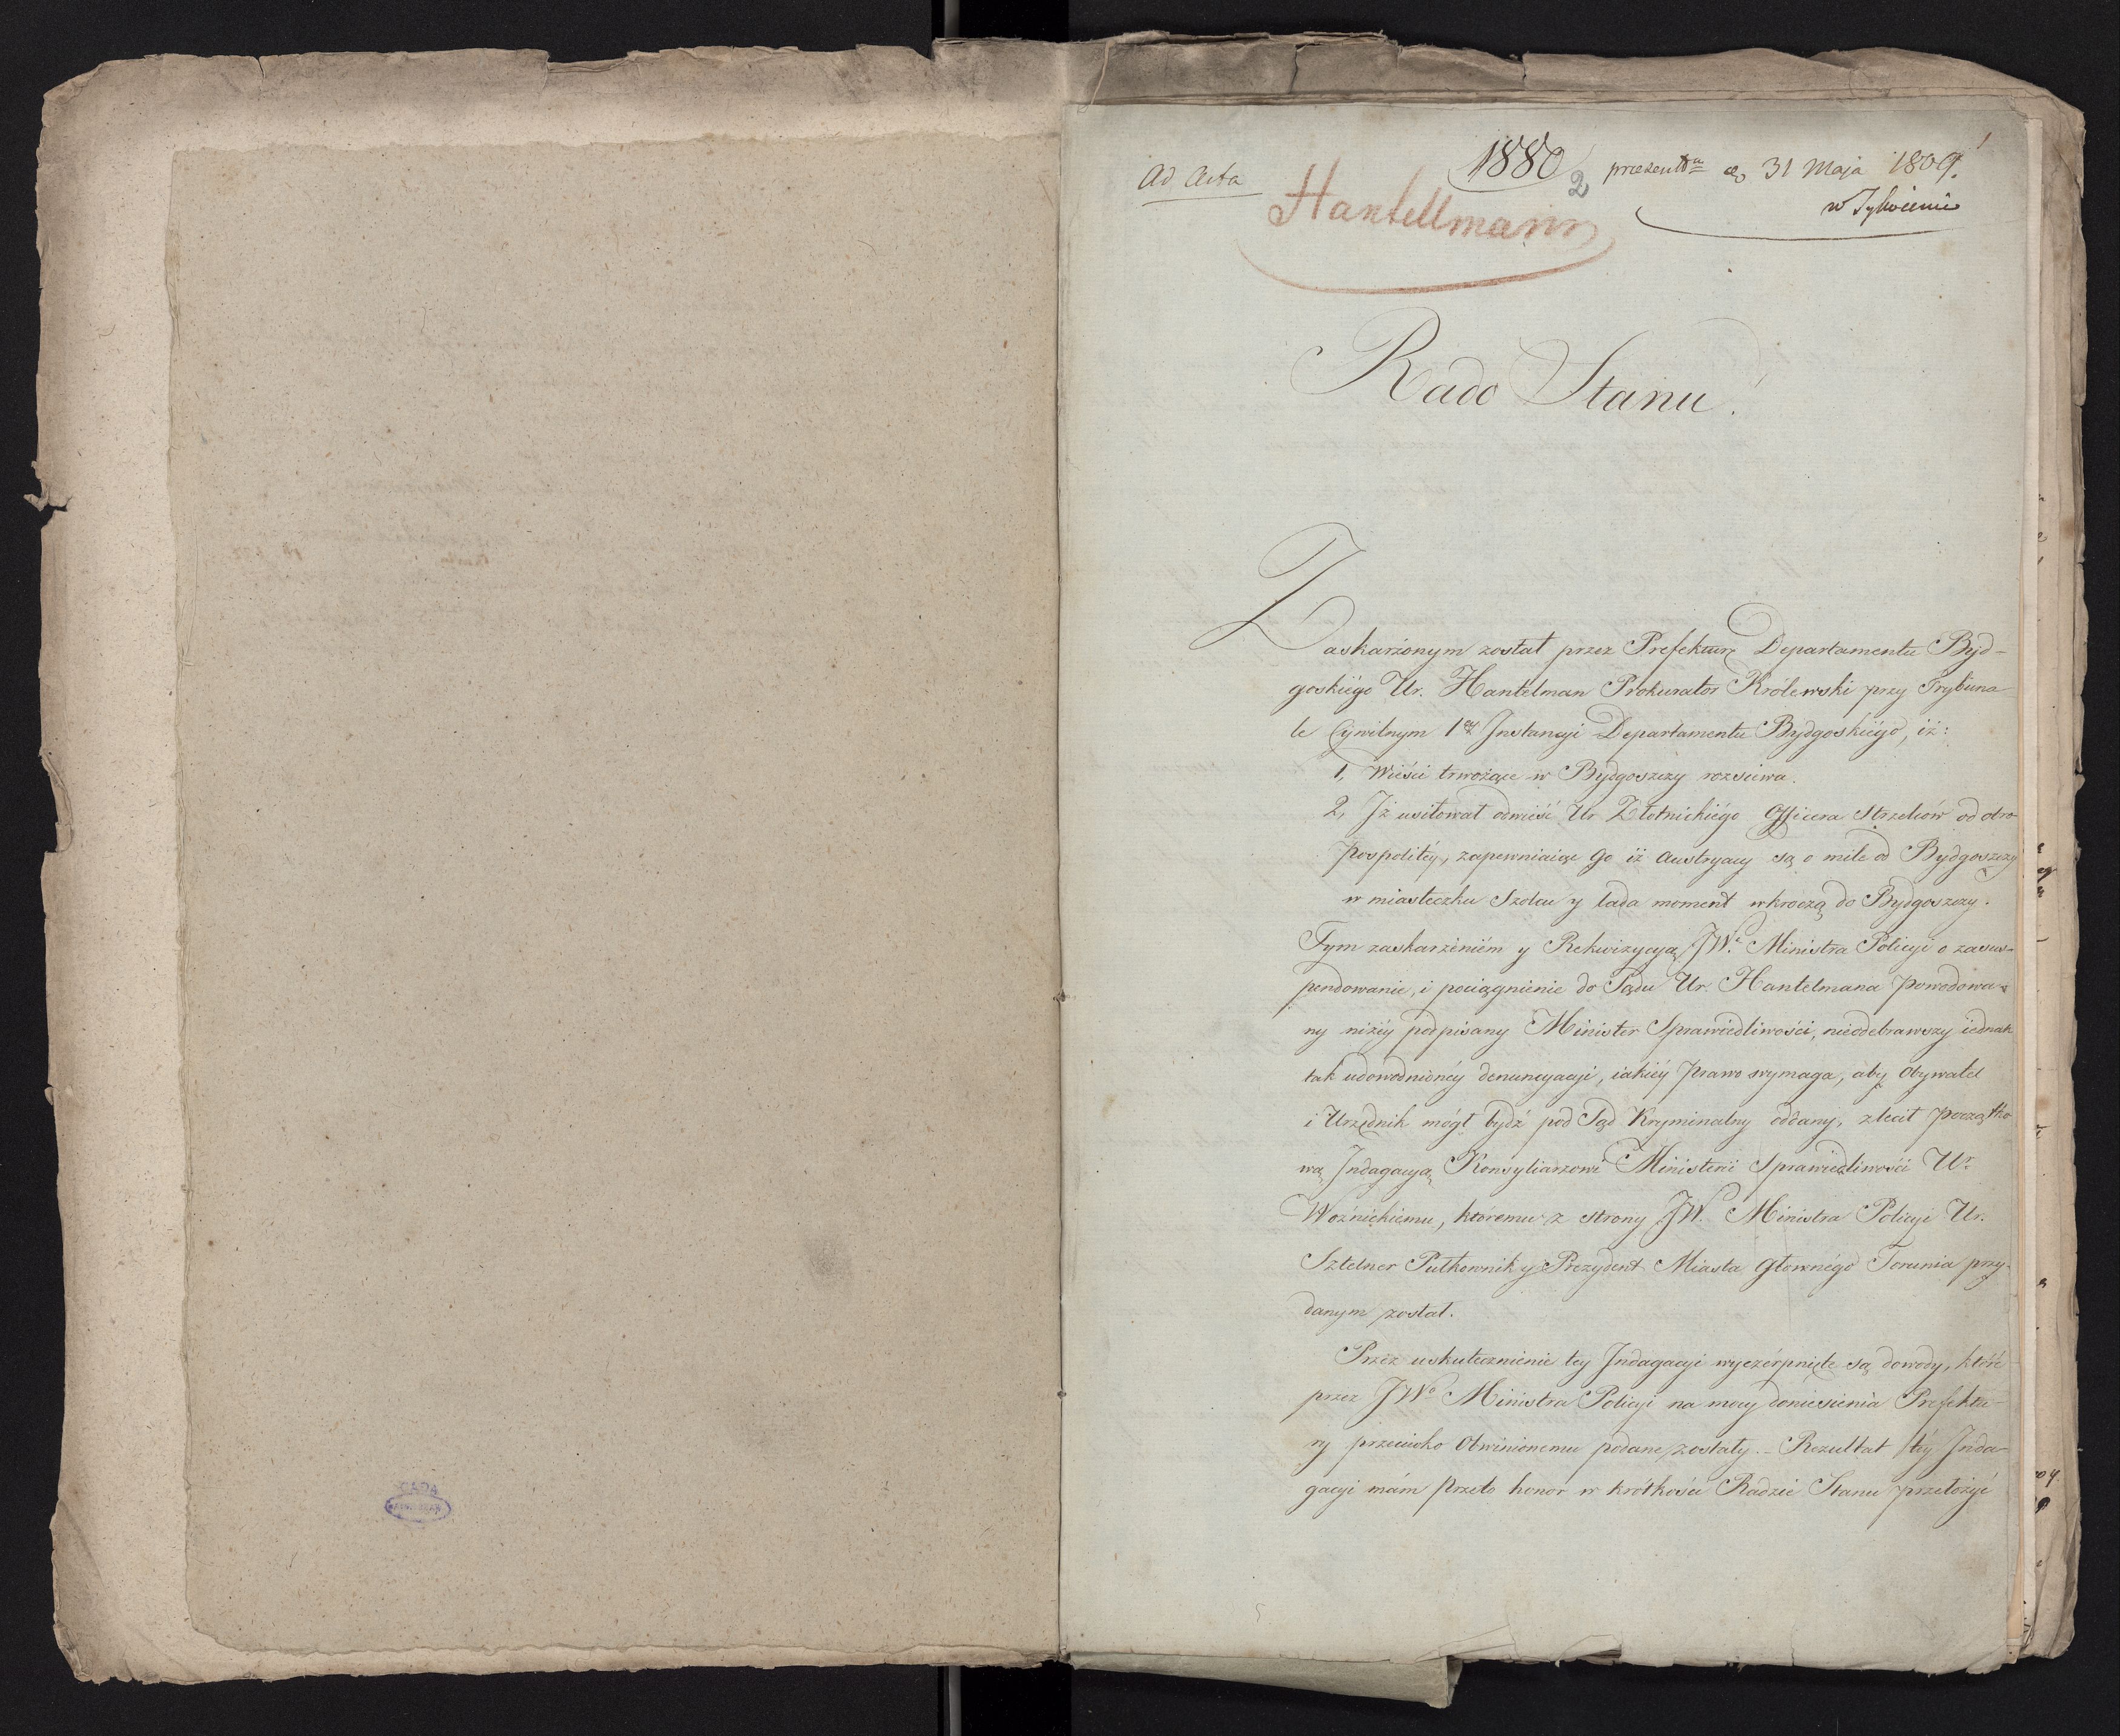 Ad Acta
1880
2
praesent. d. 31 Maja 1809.
w Tykocinie
Hantellmann
Rado Stanu!
Zaskarżonym został przez Prefekturę Departamentu Byd-
goskiégo Ur. Hantelman Prokurator Królewski przy Trybuna
le Cywilnym 1éy Jnstancyi Departamentu Bydgoskiégo, iż:
1, Wieści trwożące w Bydgoszczy rozsiewa.
2, Jż usiłował odwieść Ur Złotnickiégo Officera Strzelców od obro
pospolitéy, zapewniaiąc Go iż Austryacy są o mile od Bydgoszczy
w miasteczku Szolcu y lada moment wkroczą do Bydgoszczy.
Tym zaskarżeniém y Rekwizycyą JWo. Ministra Policyi o zasus-
pendowanie, i pociągnienie do Sądu Ur. Hantelmana powodowa-
ny niżéy podpisany Minister Sprawiedliwości, nieodebrawszy iednak
tak udowodnionéy denuncyacyi, iakiéy Prawo wymaga, aby Obywatel
i Urzędnik mógł bydź pod Sąd Kryminalny oddany, zlecił początko
wą Jndagacyą Konsyliarzowi Ministerii Sprawiedliwości Ur.
Woźnickiemu, któremu z strony JW. Ministra Policyi Ur.
Sztelner Pułkownik y Prezydent Miasta Głownégo Torunia przy-
danym został.
Przez uskutecznienie tey Jndagacyi wyczérpnięte są dowody, któré
przez JWo Ministra Policyi na mocy doniesienia Prefektu-
ry przeciwko Obwinionemu podane zostały. - Rezultat téy Jnda-
gacyi mám przeto honor w krótkości Radzie Stanu przełożyć